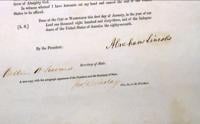 Grace of Almighty God.
In witness whereof I have hereunto set my hand and caused the seal of the United
States to be affixed.
Done at the City of Washington this first day of January, in the year of our
[L. S.] Lord one thousand eight hundred and sixty-three, and of the Independence
of the United States of America the eighty-seventh.
By the President:
Abraham Lincoln
William H. Seward
Secretary of State.
A true copy, with the autograph signatures of the President and the Secretary of State.
Jno. G. Nicolay